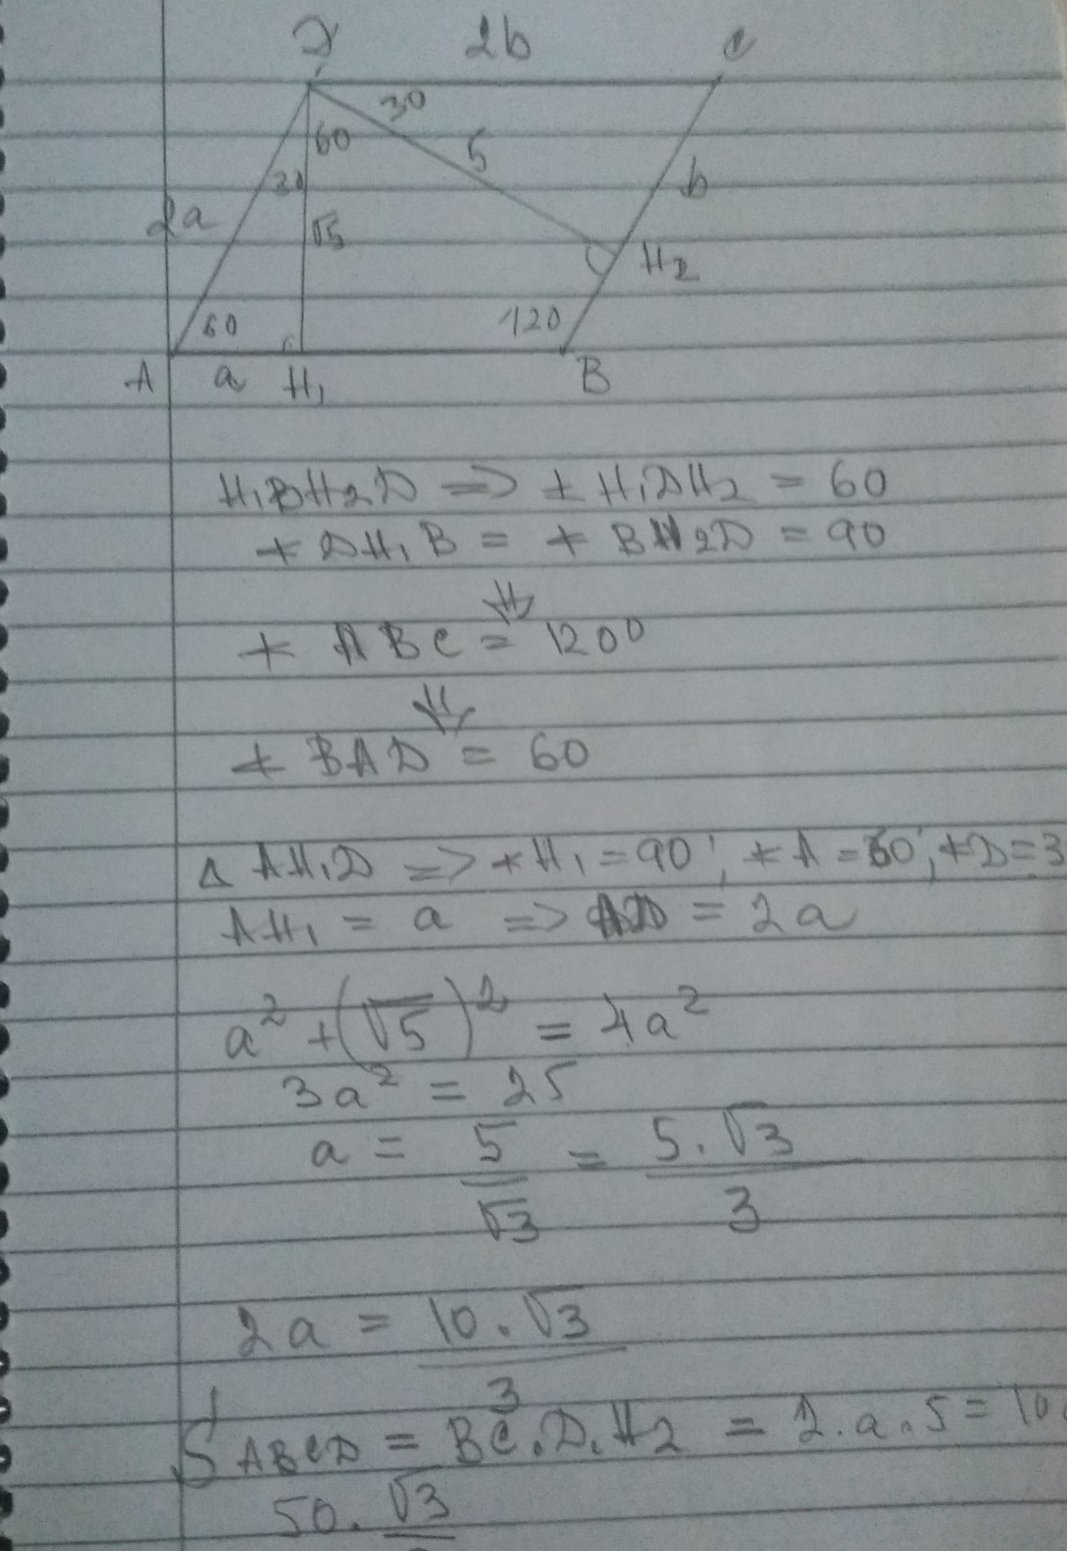 D 2b C
30
60
5
30
b
2a
√5
H2
60
120
A a H₁ B
H₁BH2D => ∡ H₁DH2 = 60
∡ DH₁B = ∡ BH2D = 90
⇓
∡ ABC = 120⁰
⇓
∡ BAD = 60
Δ AH₁D => ∡H₁ = 90', ∡A = 60', ∡D = 3
AH₁ = a => AD = 2a
a² + (√5)² = 4a²
3a² = 25
a = 5/√3 = 5.√3/3
2a = 10.√3/3
S ABCD = BC.D.H2 = 2.a.5 = 10
50.√3